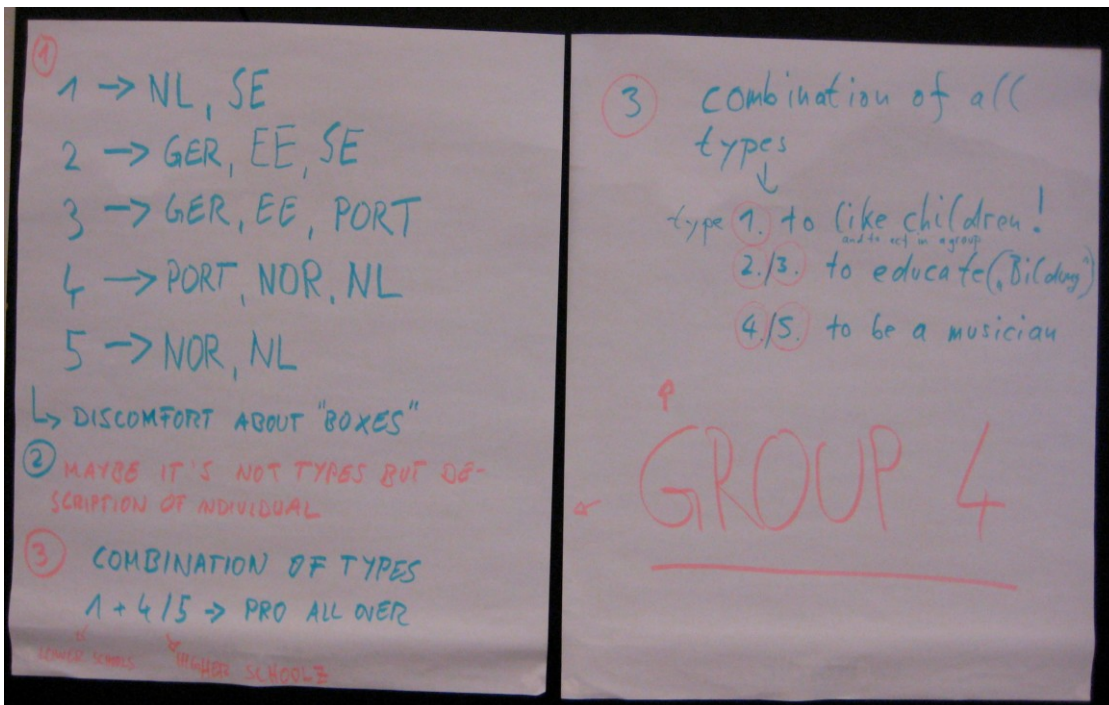 1
1 → NL, SE
2 → GER, EE, SE
3 → GER, EE, PORT
4 → PORT, NOR, NL
5 → NOR, NL
↳ DISCOMFORT ABOUT "BOXES"
2 MAYBE IT'S NOT TYPES BUT DE-
SCRIPTION OF INDIVIDUAL
3 COMBINATION OF TYPES
1 + 4/5 → PRO ALL OVER
LOWER SCHOOLS HIGHER SCHOOLZ
3 combination of all
types
↓
type 1. to like children!
and to act in a group
2./3. to educate („Bildung")
4./5. to be a musician
GROUP 4